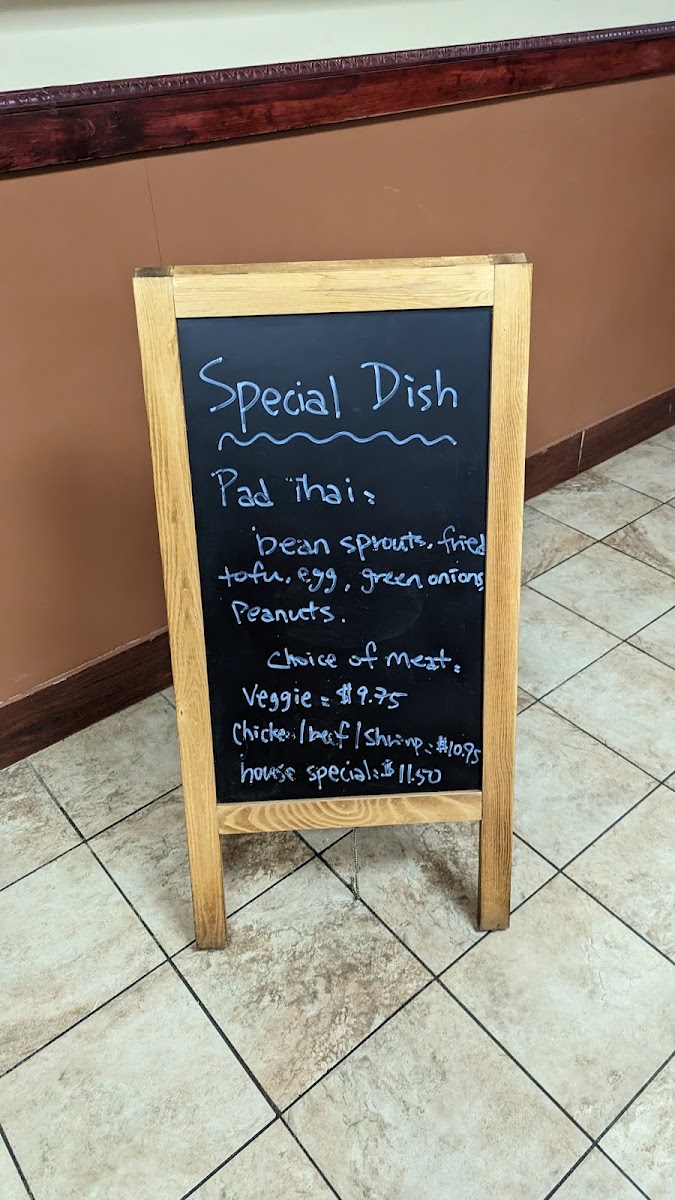 Special Dish
Pad Thai:
bean sprouts, fried
tofu, egg, green onions,
Peanuts.
Choice of meat:
Veggie: $9.75
Chicken/beef/shrimp: $10.95
house special: $11.50